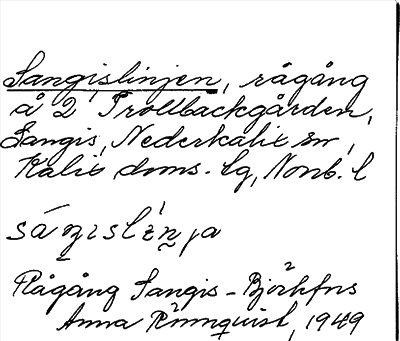 Sangislinjen, rågång
å 2 Trollbackgården,
Sangis, Nederkalix sn,
Kalix doms. lg, Norrb. l
Rågång Sangis - Björkfors
Anna Rönnquist, 1949